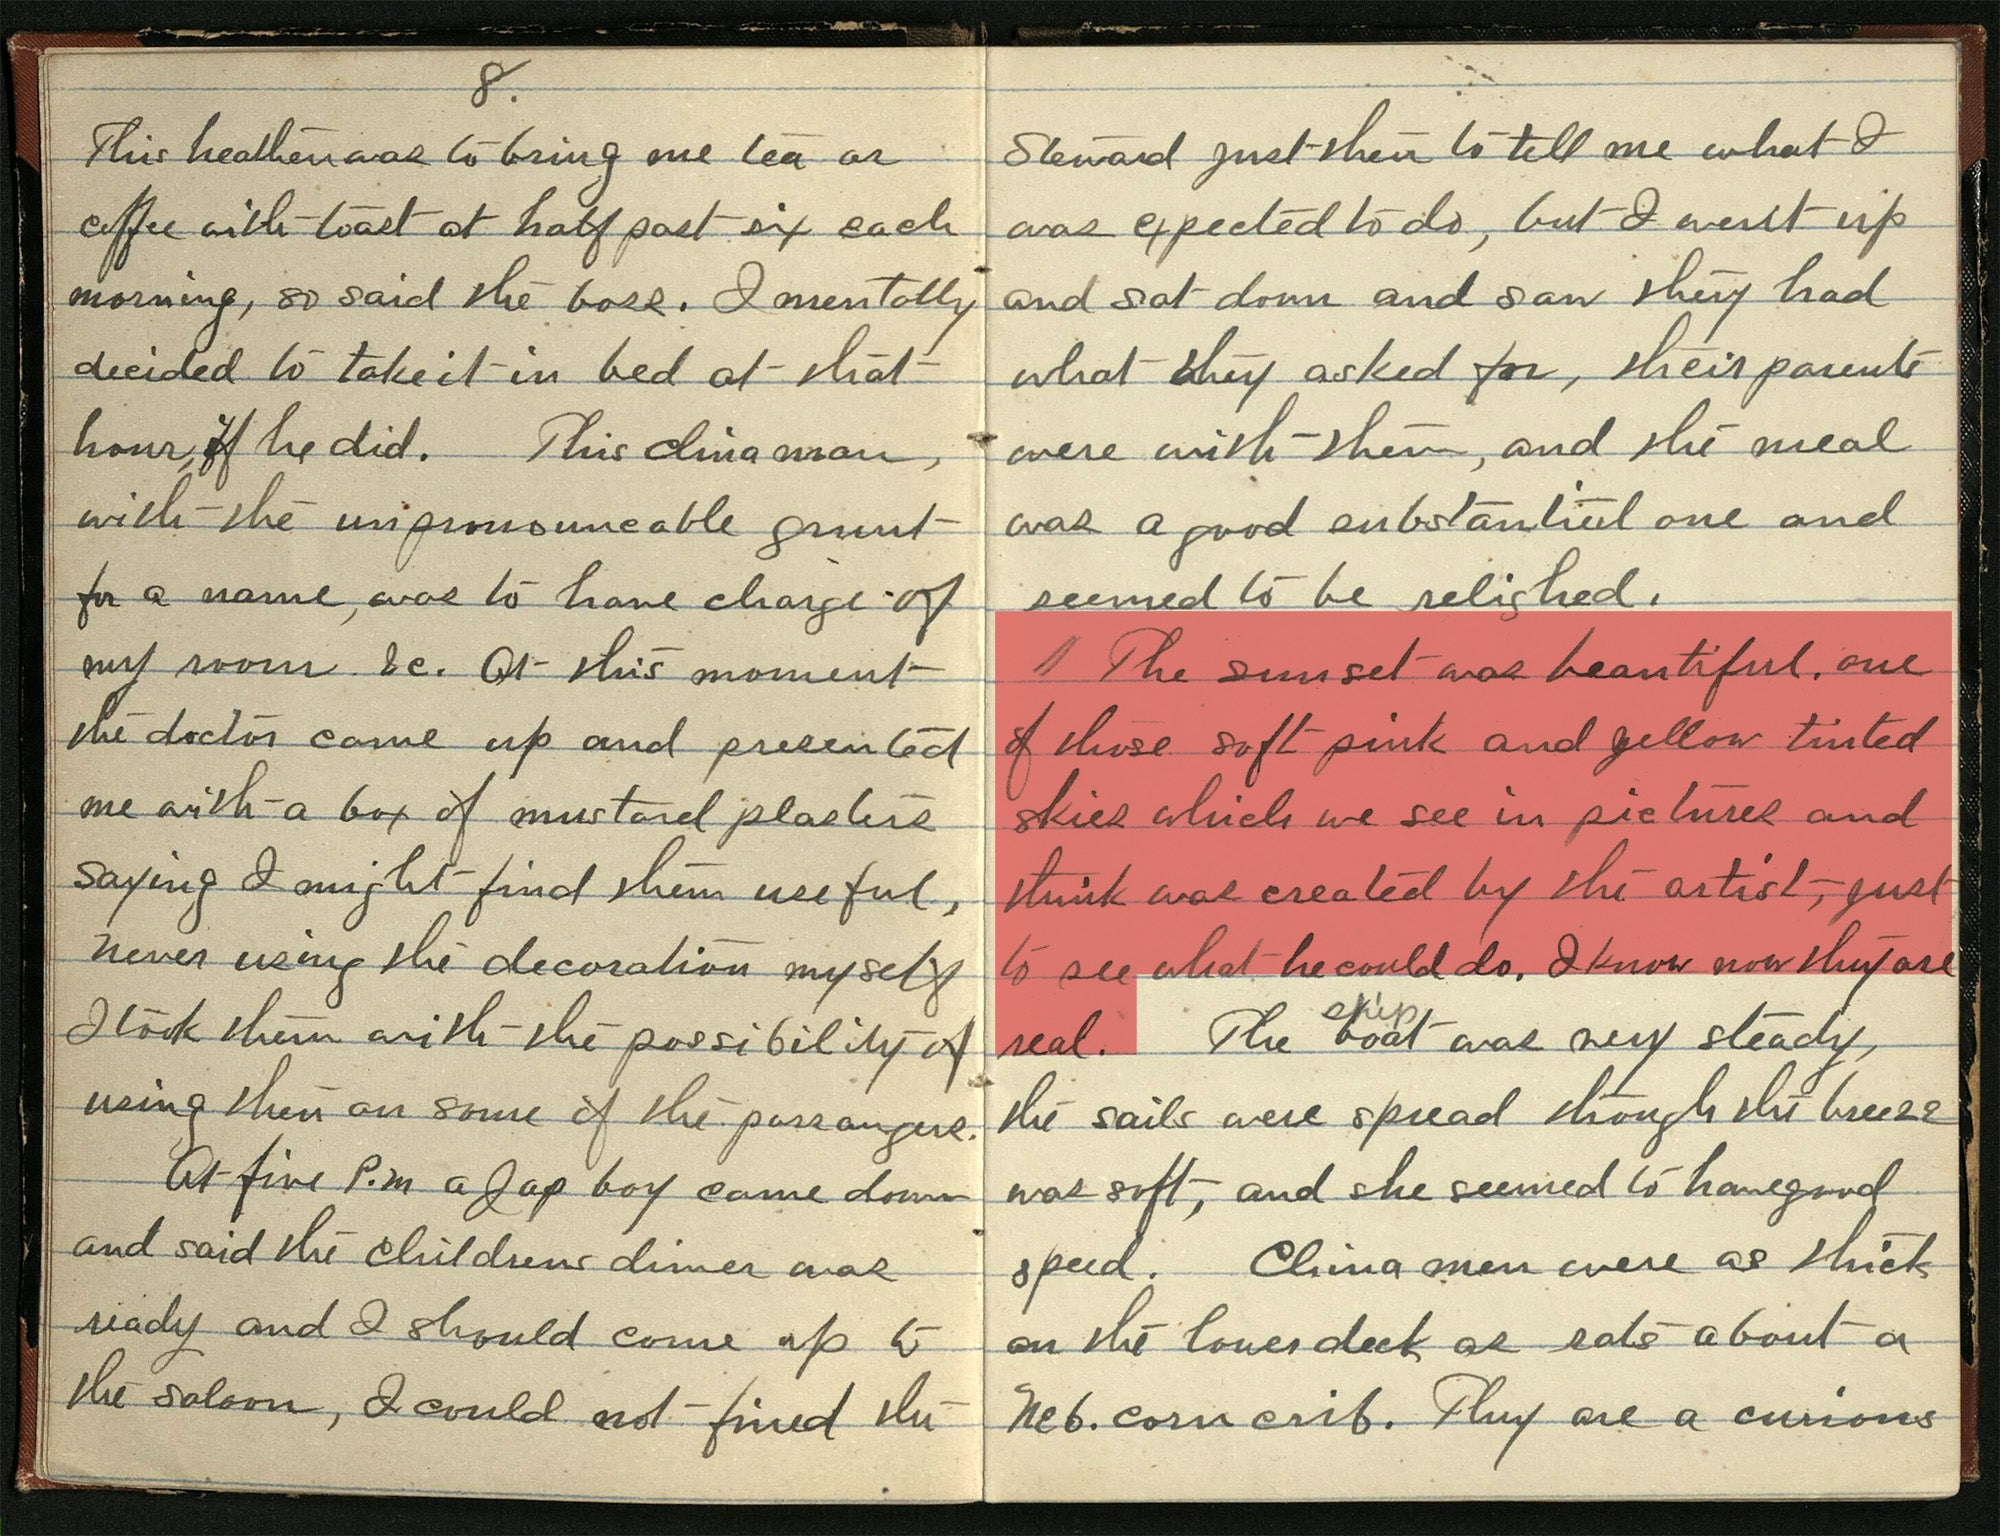 8.
This heathen was to bring me tea or
coffee with toast at half past six each
morning, so said the boss. I mentally
decided to take it in bed at that
hour, if he did. This china man,
with the unpronounceable grunt
for a name, was to have charge of
my room &c. At this moment
the doctor came up and presented
me with a box of mustard plasters
saying I might find them useful,
never using the decoration myself
I took them with the possibility of
using them on some of the passangers.
At five P.m a Jap boy came down
and said the childrens dinner was
ready and I should come up to
the saloon, I could not fined the
Steward just then to tell me what I
was expected to do, but I went up
and sat down and saw they had
what they asked for, their parents
were with them, and the meal
was a good substantial one and
seemed to be relished.
// The sunset was beautiful. one
of those soft pink and yellow tinted
skies which we see in pictures and
think was created by the artist, just
to see what he could do. I know now they are
real. The boat was very steady,
ship
the sails were spread though the breeze
was soft, and she seemed to have good
speed. China men were as thick
on the lower deck as rats about a
Neb. corn crib. They are a curious